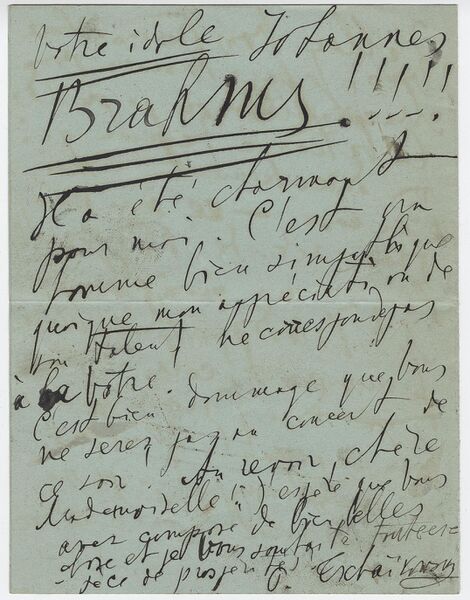 Votre idole Johannes
Brahms!!!!!
Il a été charmant
pour moi. C'est un
homme bien simpathique
quoique mon appréciation de
son talent ne corresponde pas
à la votre. C'est bien dommage que vous
ne serez pas au concert de
ce soir. Au revoir, chère
Mademoiselle! J'espère que vous
avez composé de bien belles
choses et je vous souhaite toute
de prosperité. P. Tschaïkovsky